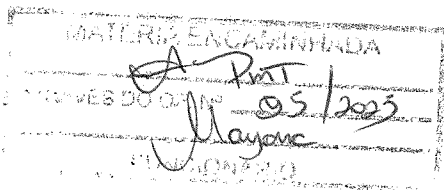 MATÉRIA ENCAMINHADA
A PMT
ATRAVÉS DO OF. Nº 05/2023
Mayane
FUNCIONÁRIO